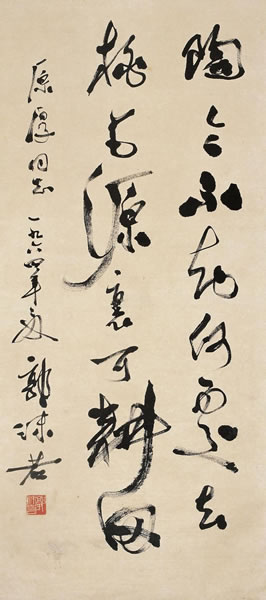 陶令不知何處去
桃花源裏可耕田
同志 一九六四年 郭沫若